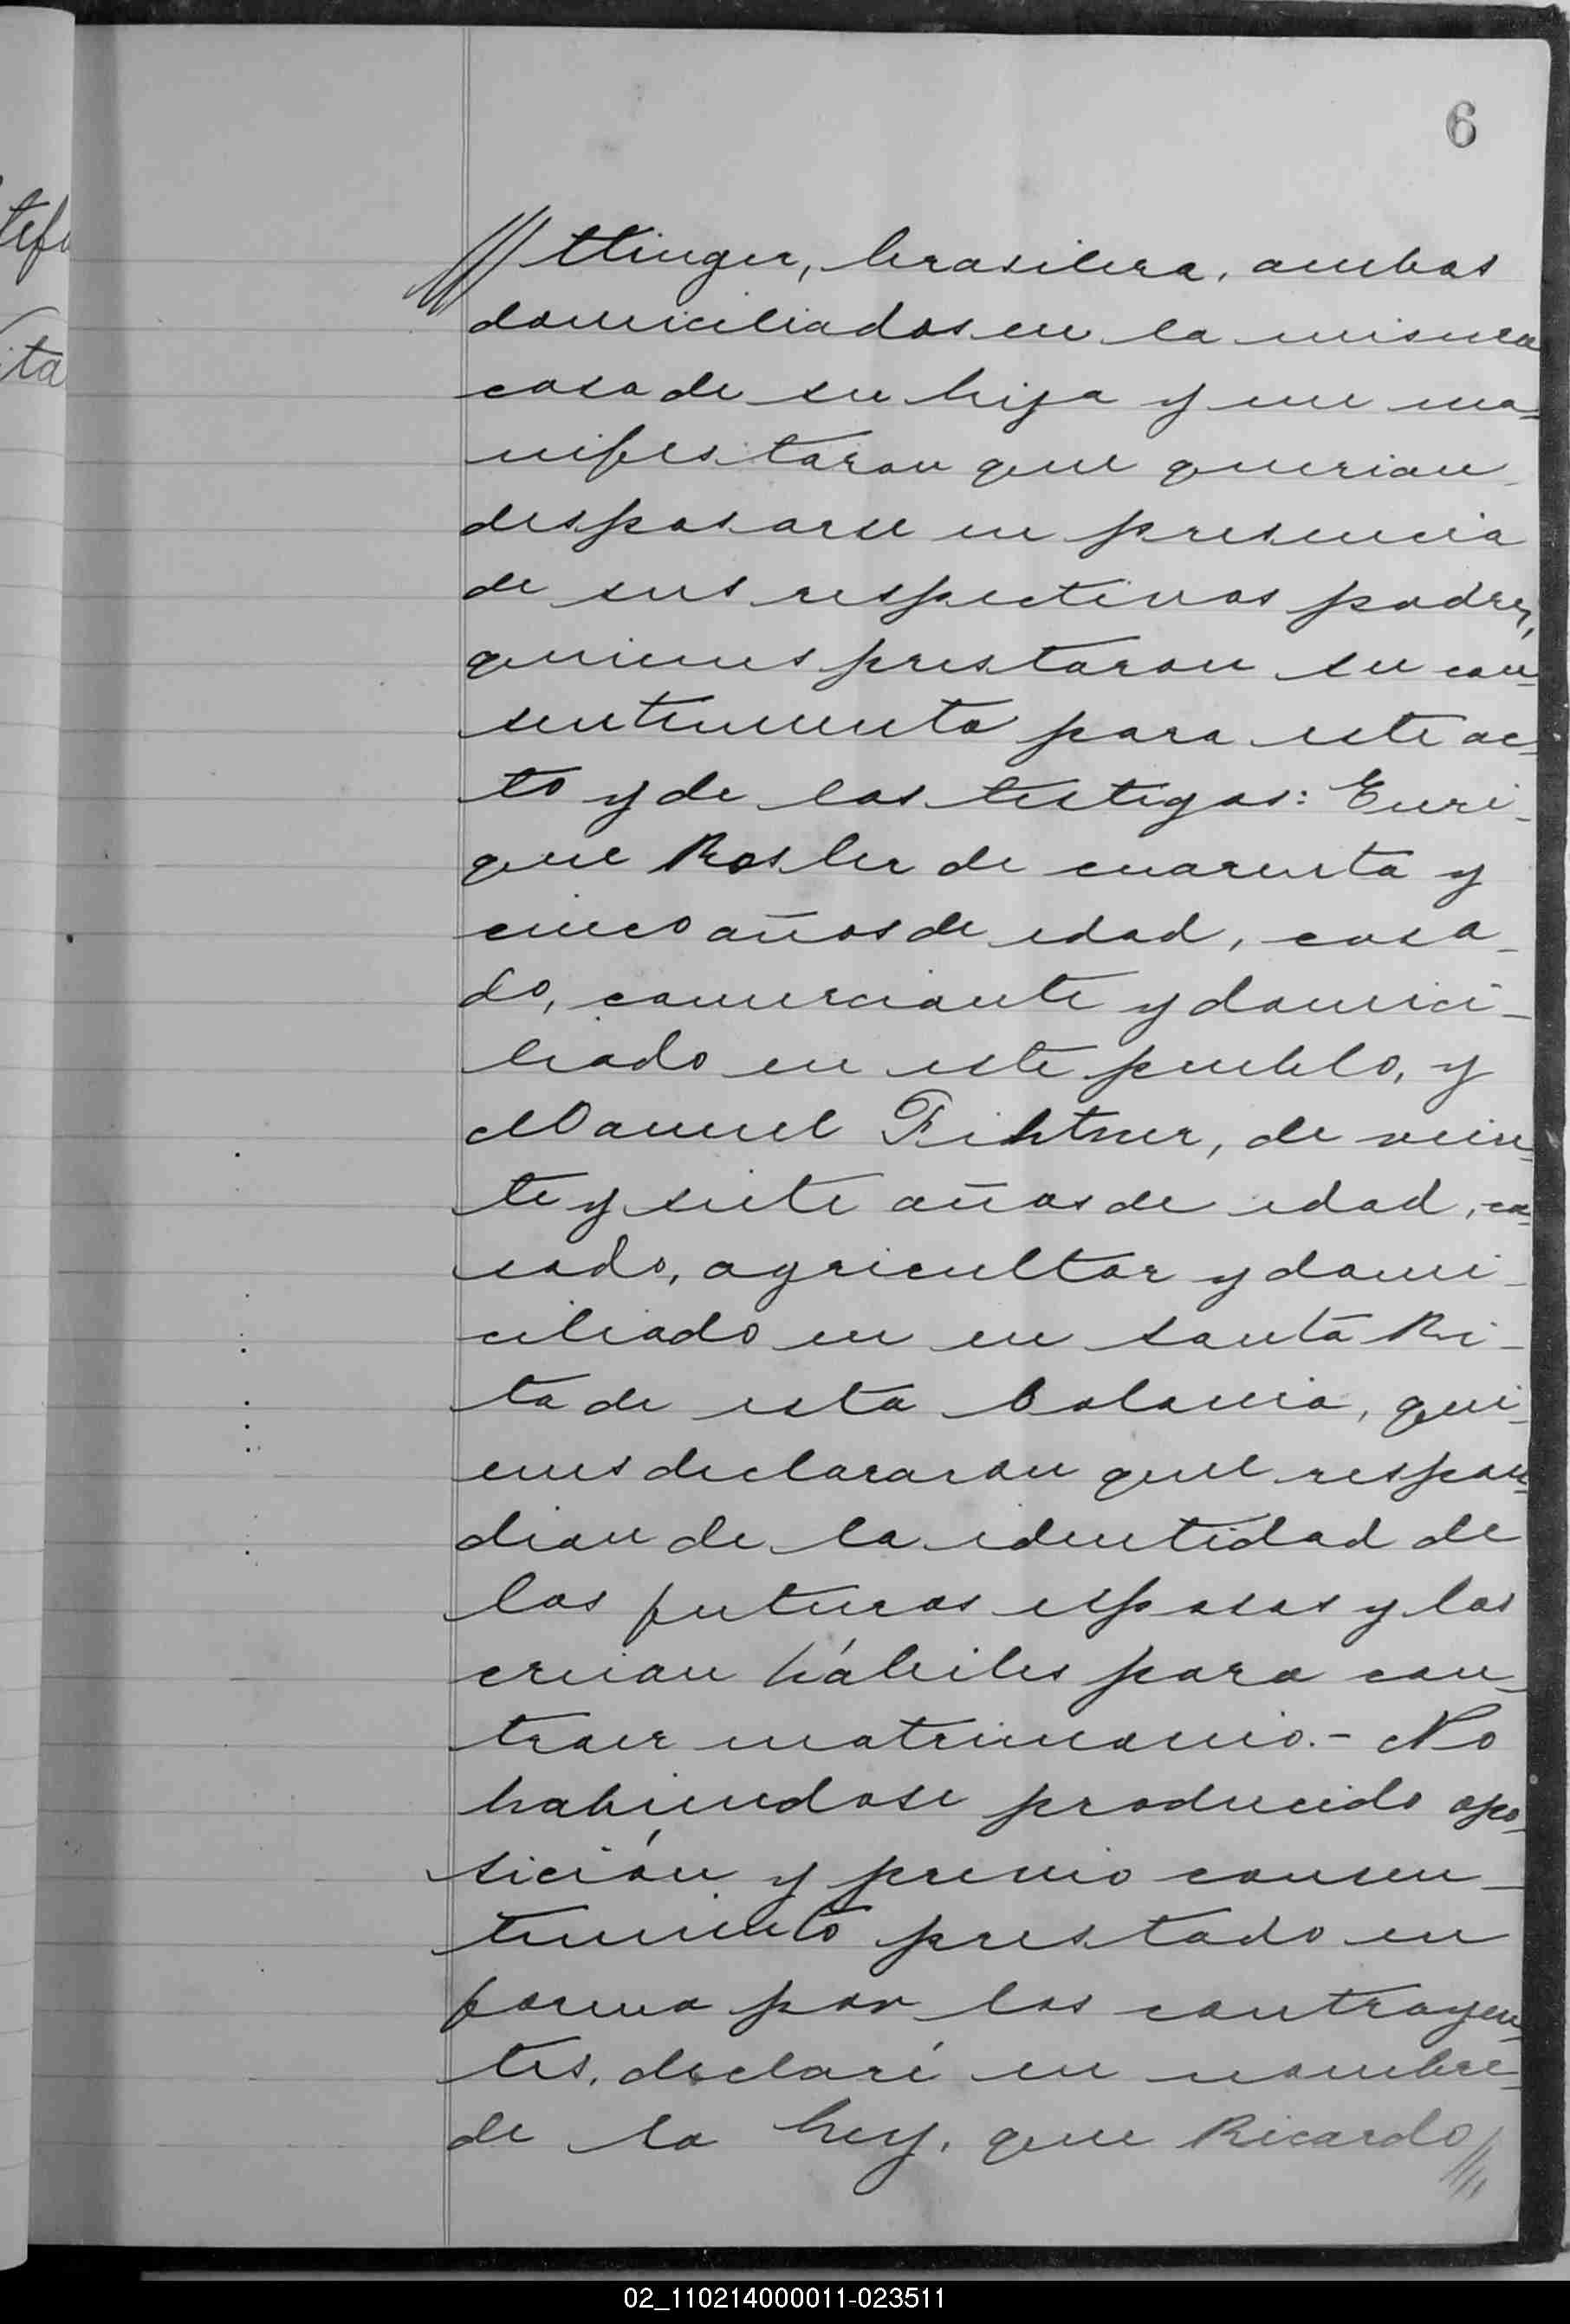 6
tefa
ita
ttinger, brasilera, ambos
domiciliados en la misma
casa de su hija y me ma-
nifestaron que querian
desposarse en presencia
de sus respectivos padres,
quienes prestaron su con-
sentimento para este ac-
to y de los testigos: Enri-
que Rosler de cuarenta y
cinco años de edad, casa-
do, comerciante y domici-
liado en este pueblo, y
Manuel Fihtner, de vein-
te y siete años de edad, ca-
sado, agricultor y domi-
ciliado en en santa Ri-
ta de esta Colonia, qui-
enes declararon que respon-
dian de la identidad de
los futuros esposos y los
creian hábiles para con-
traer matrimonio.- No
habiendose producido opo-
sición y previo consen-
timiento prestado en
forma por los contrayen-
tes, declaré en nombre
de la ley, que Ricardo
02_110214000011-023511